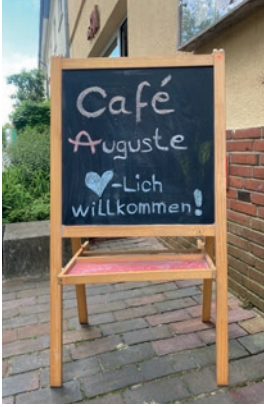 Café
Auguste
♥-Lich
willkommen!